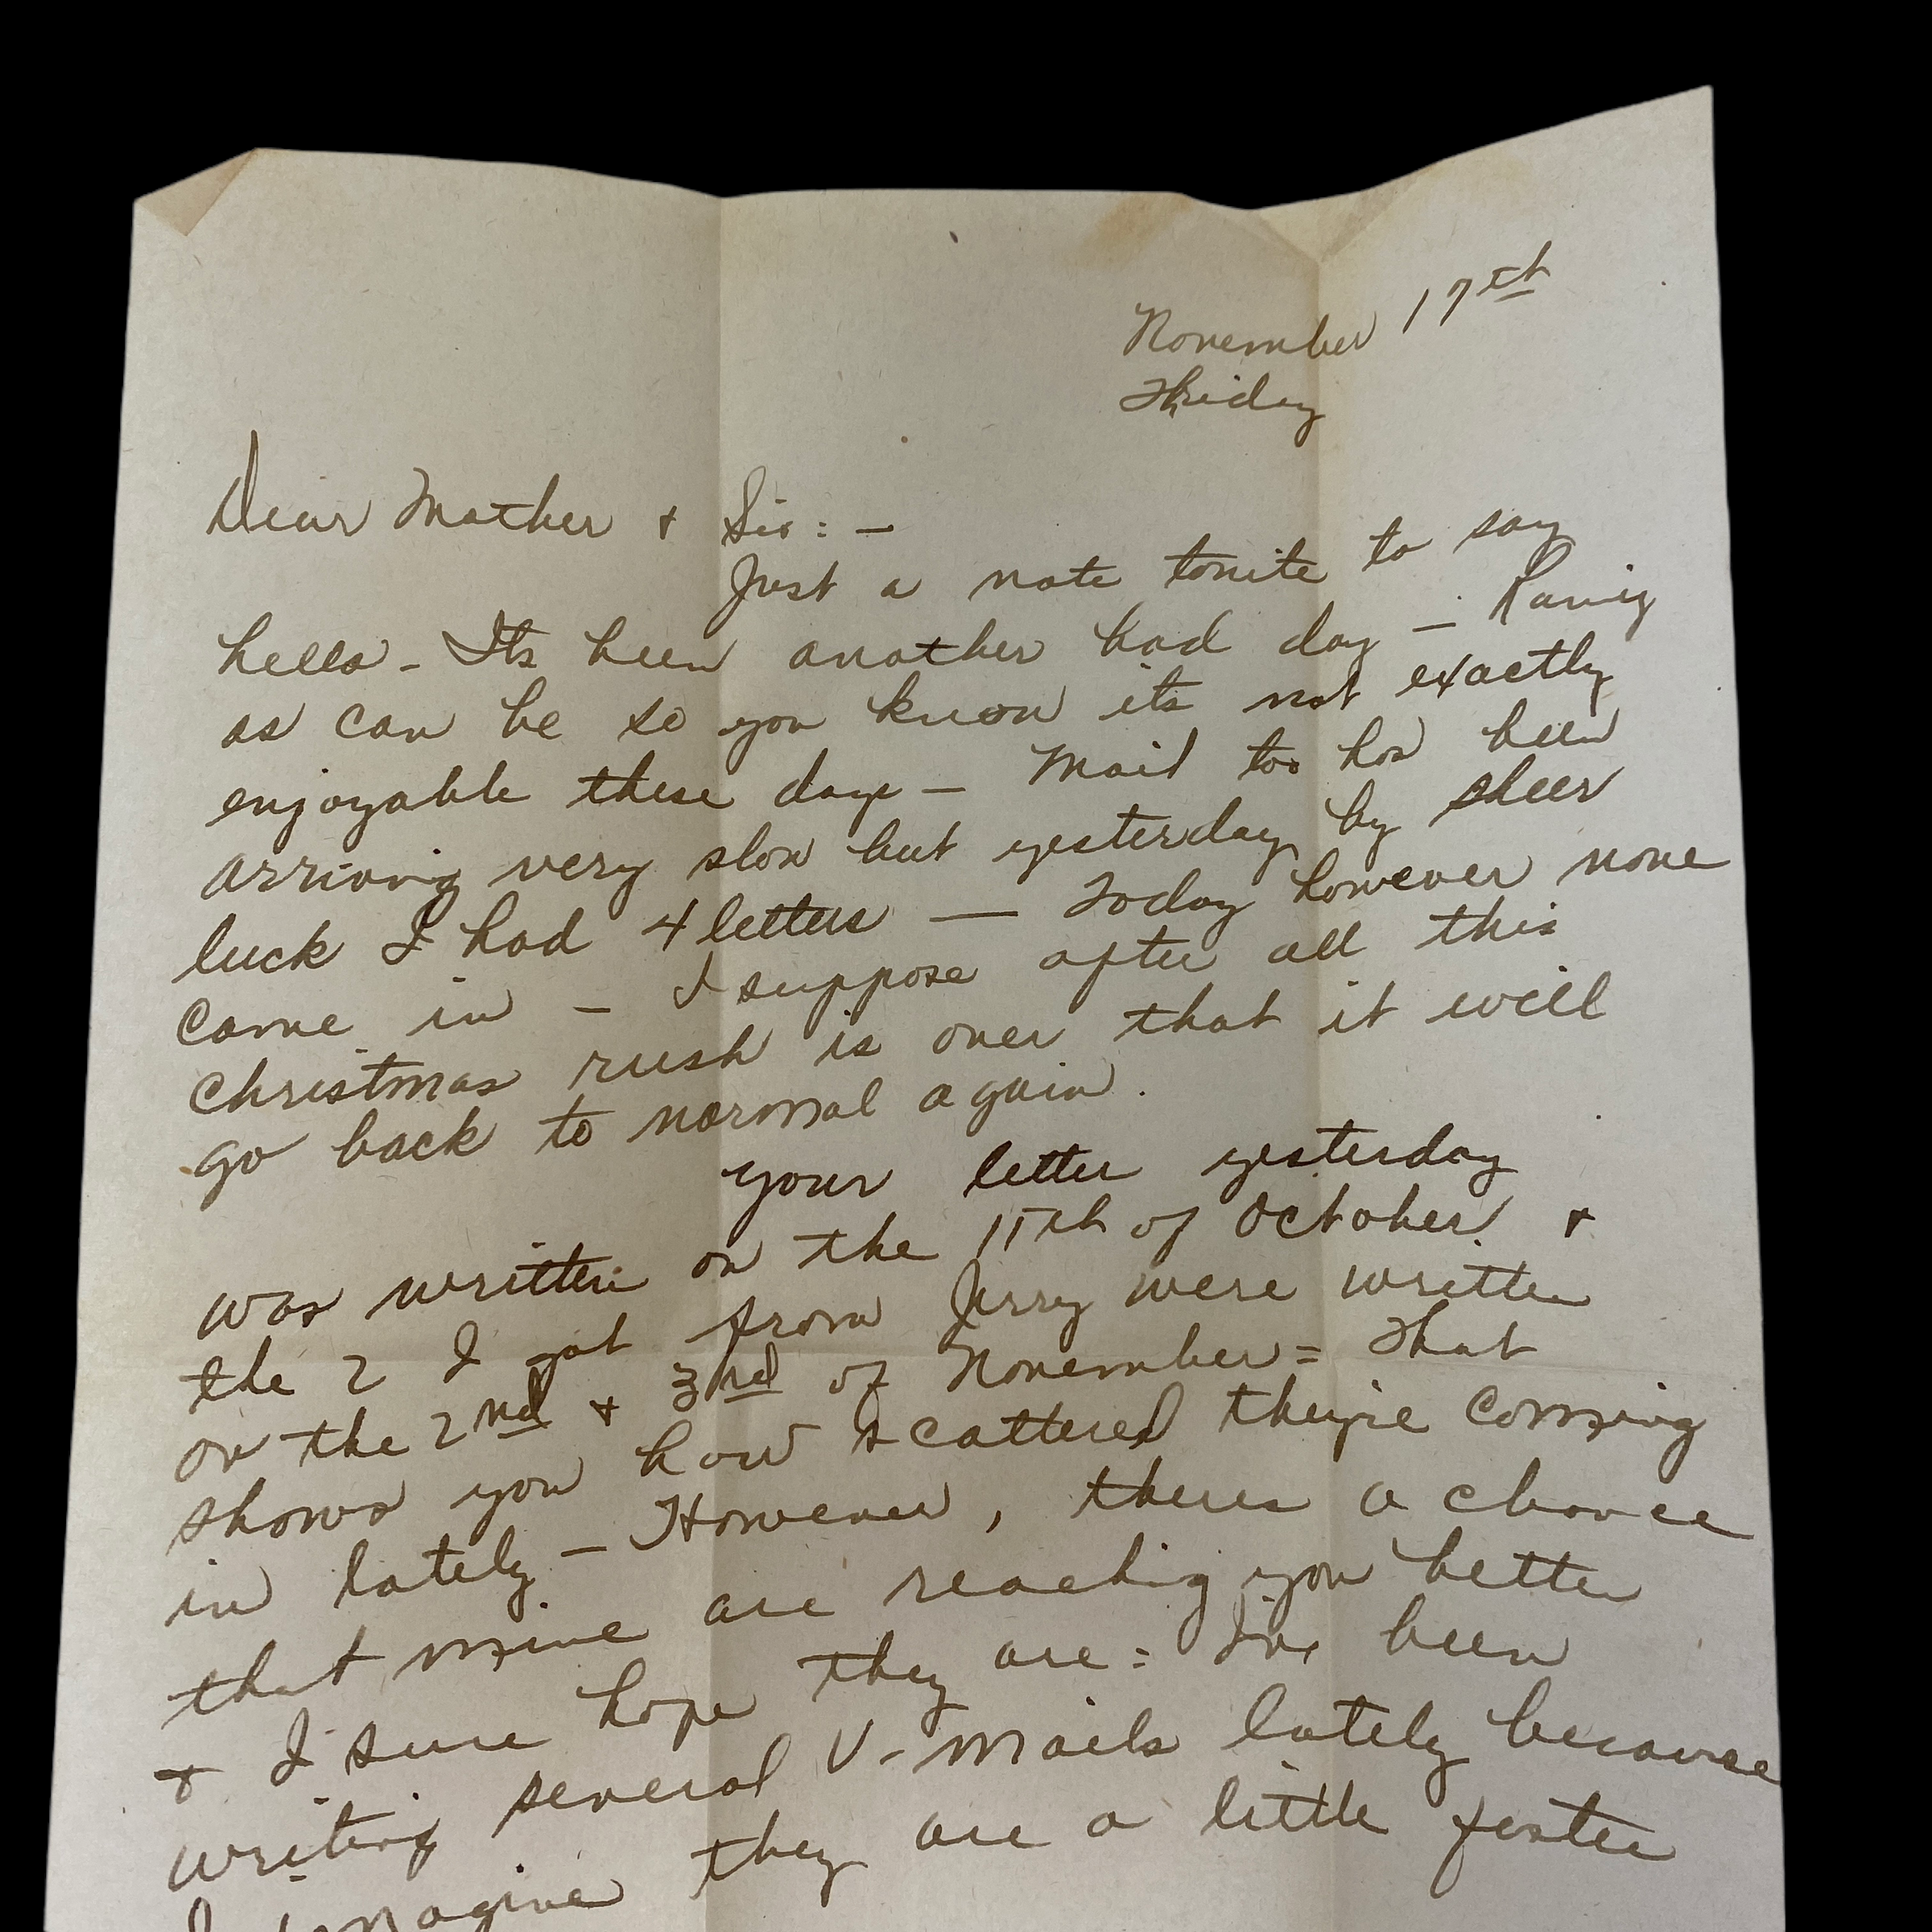 November 17th
Friday
Dear Mother + Sis: -
Just a note tonite to say
hello - Its been another bad day - Rainy
as can be so you know its not exactly
enjoyable these days - Mail too has been
arriving very slow but yesterday by sheer
luck I had 4 letters - Today however none
came in - I suppose after all this
Christmas rush is over that it will
go back to normal again.
Your letter yesterday
was written on the 15th of October +
the 2 I got from Jerry were written
on the 2nd + 3rd of November = That
shows you how scattered they're coming
in lately - However, theres a chance
that mine are reaching you better
+ I sure hope they are = I've been
writing several V-Mails lately because
I imagine they are a little faster